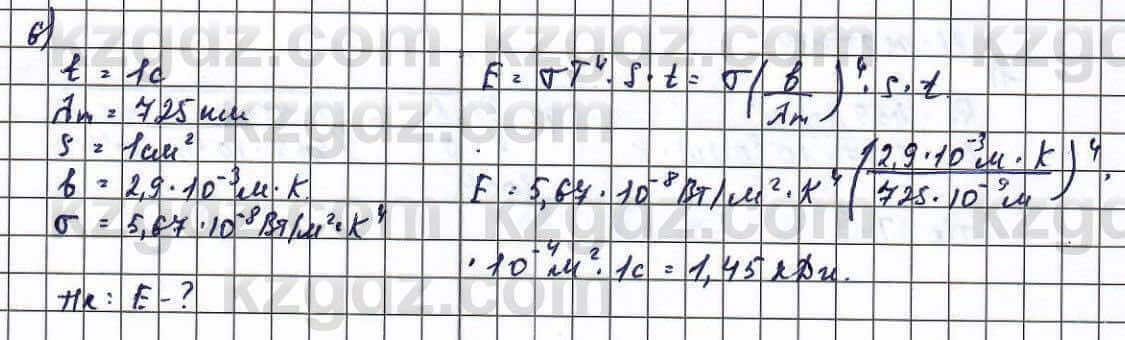 6)
t = 1с
λm = 725 нм
S = 1см²
b = 2,9·10⁻³м·К.
σ = 5,67·10⁻⁸Вт/м²·К⁴
Тк: E - ?
E = σT⁴·S·t = σ(b/λm)⁴·S·t.
E = 5,67·10⁻⁸Вт/м²·К⁴(2,9·10⁻³м·К/725·10⁻⁹м)⁴·
·10⁻⁴м²·1с = 1,45 кДж.
kzgdz.com
kzgdz.com
kzgdz.com
kzgdz.com
kzgdz.com